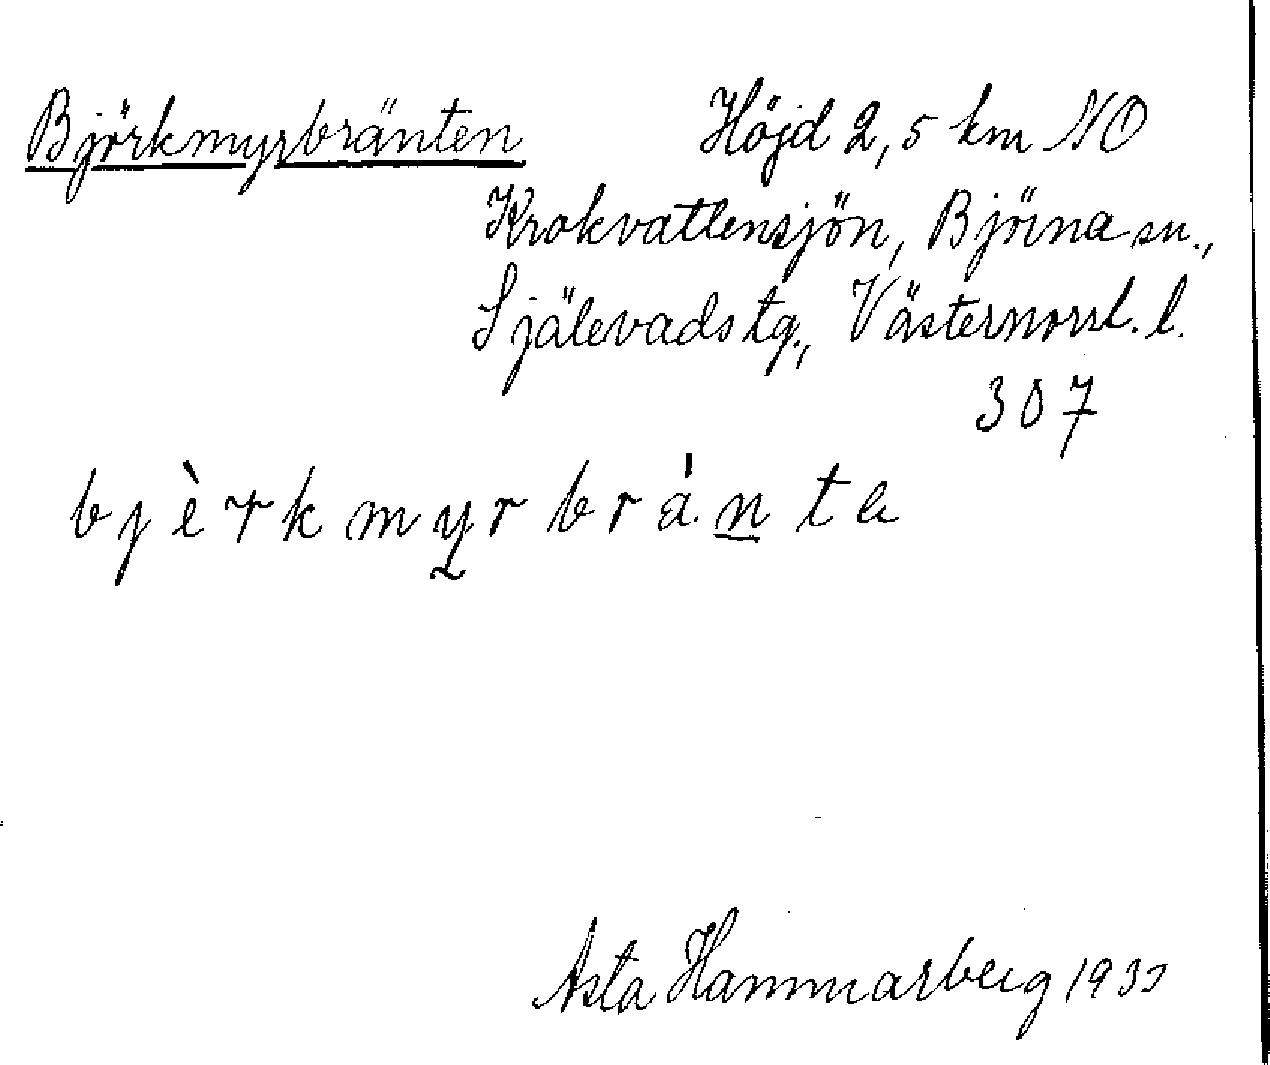 Björkmyrbränten Höjd 2,5 km NO
Krokvattensjön, Björna sn.,
Själevads tg., Västernorrl. l.
307
bjèrkmyrbránta
Asta Hammarberg